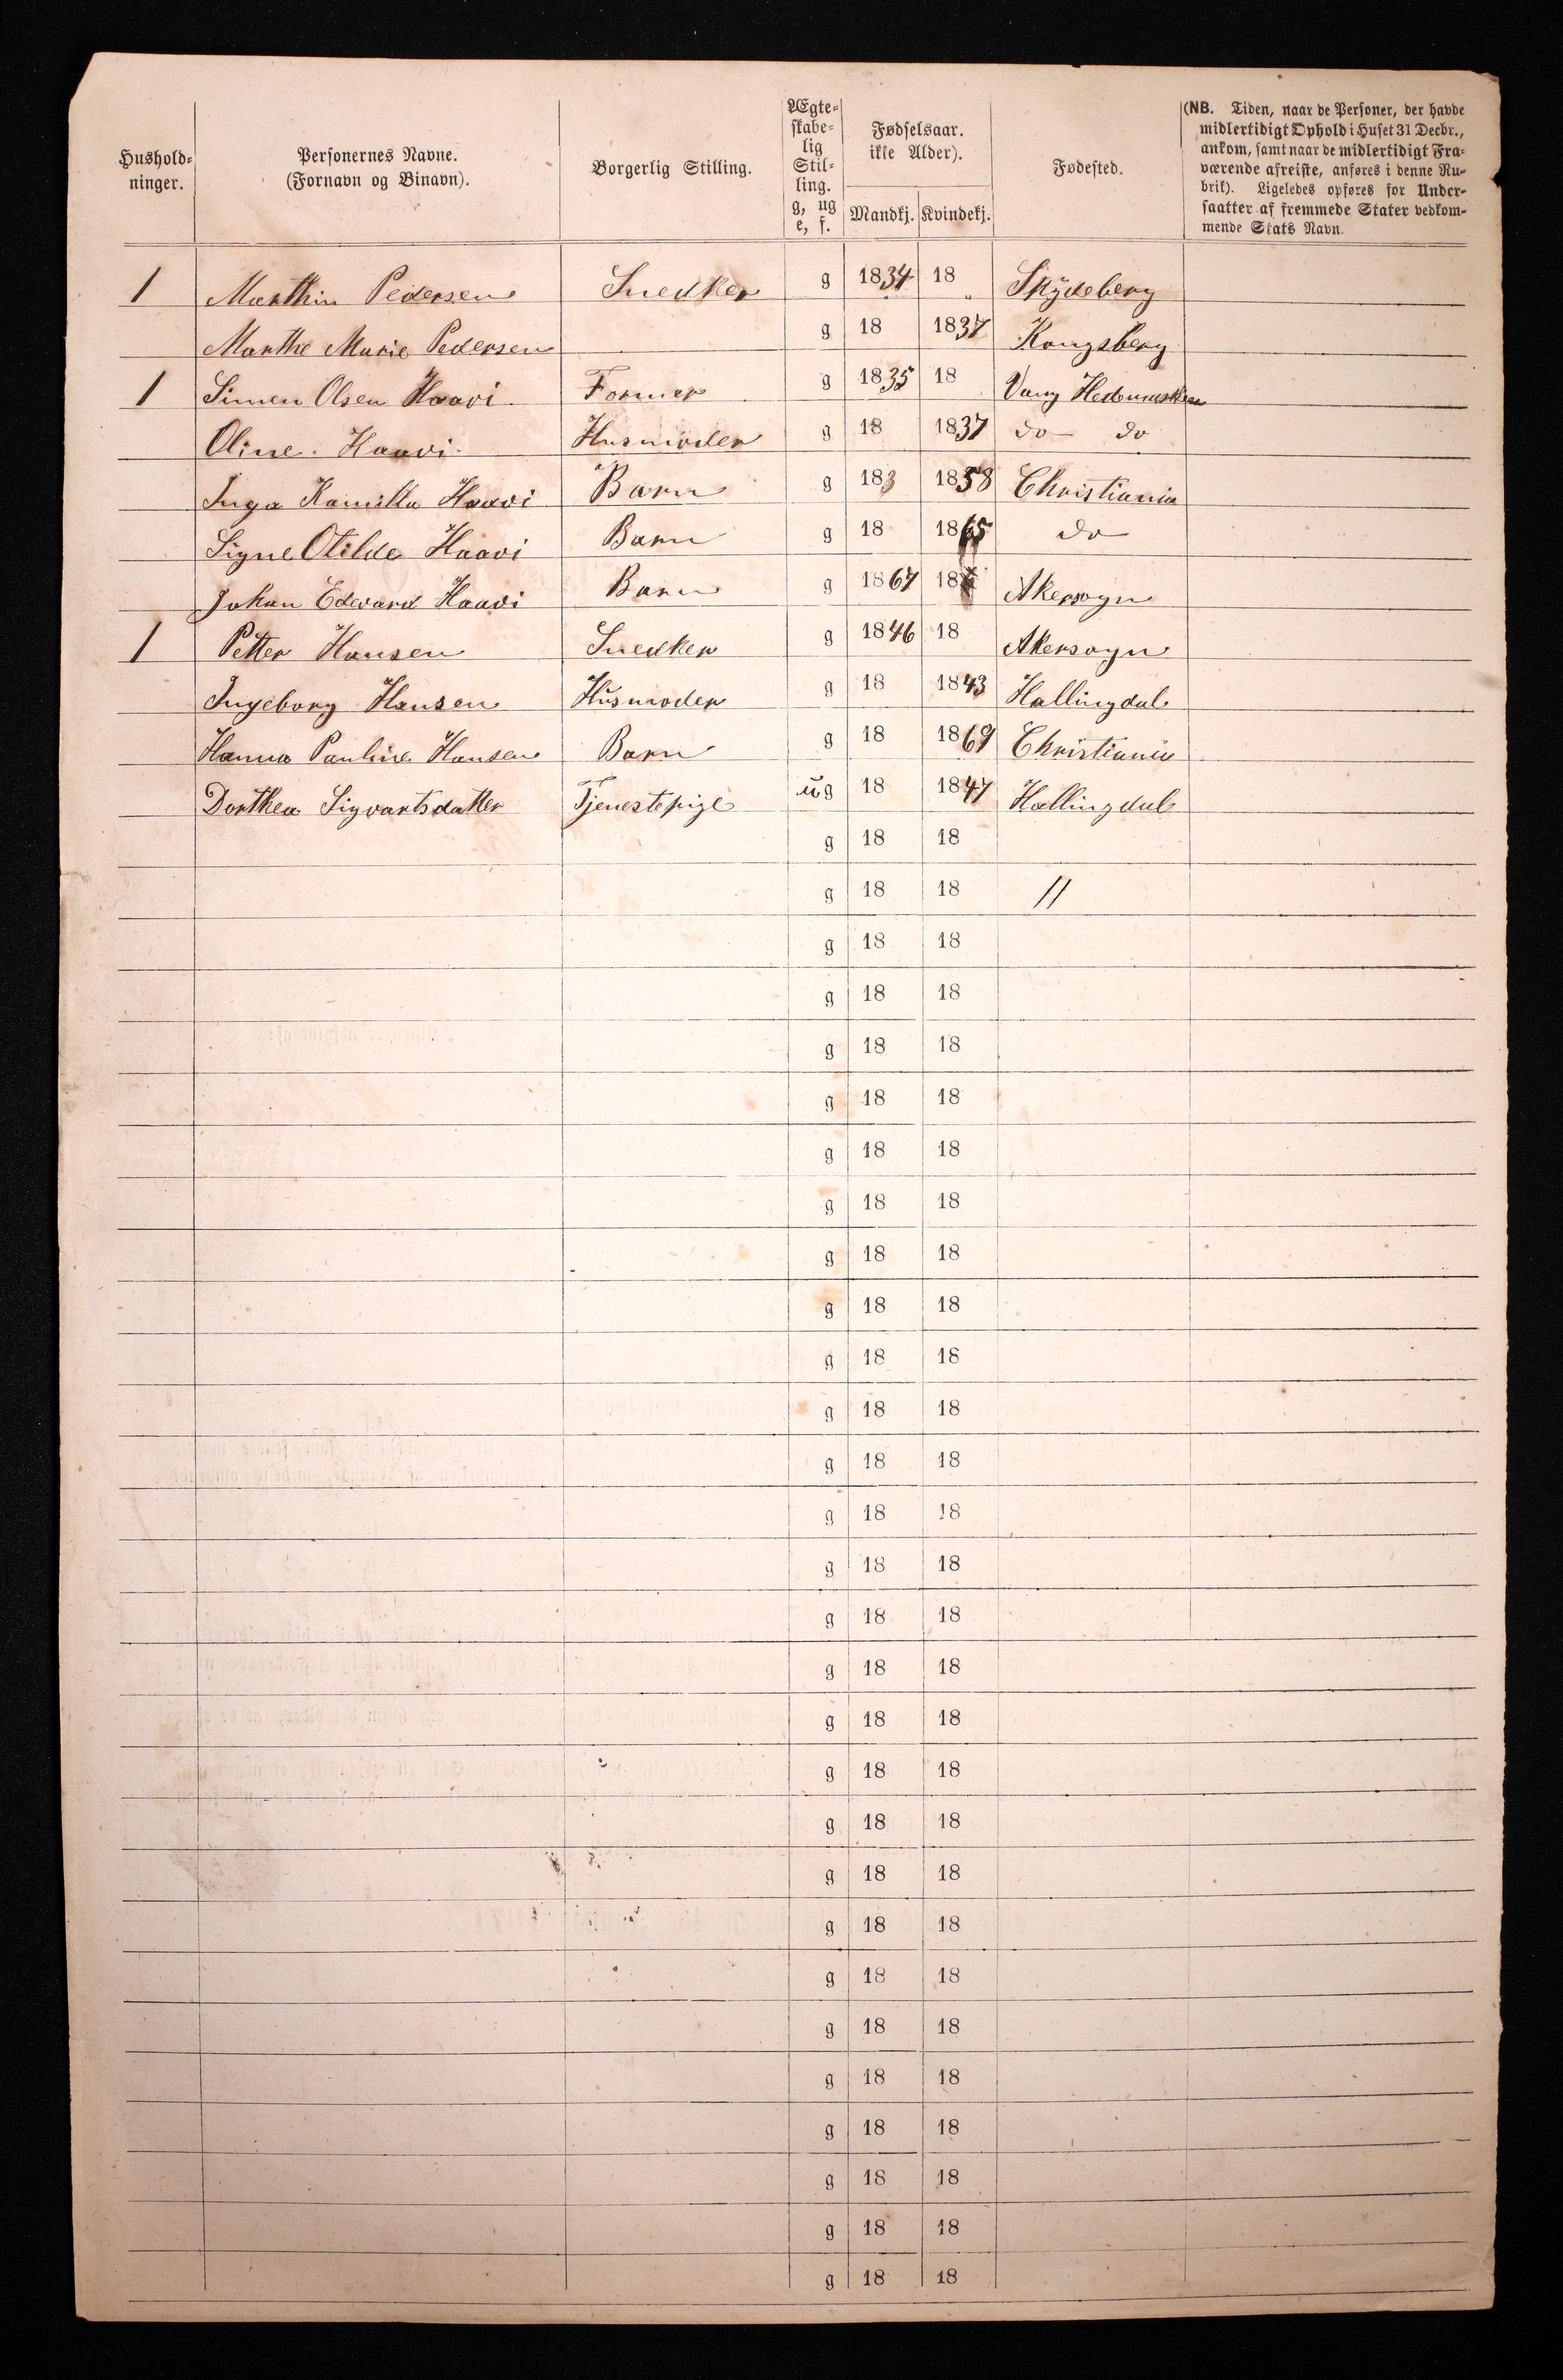 Hushold-
ninger.
Personernes Navne.
(Fornavn og Binavn).
Borgerlig Stilling.
Ægte-
skabe-
lig
Stil-
ling.
g, ug
e, f.
Fødselsaar.
ikke Alder).
Mandkj. Kvindekj.
Fødested.
(NB. Tiden, naar de Personer, der havde
midlertidigt Ophold i Huset 31 Decbr.,
ankom, samt naar de midlertidigt Fra-
værende afreiste, anføres i denne Ru-
brik). Ligeledes opføres for Under-
saatter af fremmede Stater vedkom-
mende Stats Navn.
1 Marthin Pedersen Snedker g 1834 18 Skydeberg
Marthe Marie Pedersen g 18 1837 Kongsberg
1 Simen Olsen Haavi Former g 1835 18 Vang Hedemarken
Oline Haavi Husmoder g 18 1837 do do
Inga Kamilla Haavi Barn g 183 1858 Christiania
Signe Otilde Haavi Barn g 18 1865 do
Johan Edevard Haavi Barn g 1867 18 Akersogn
1 Petter Hansen Snedker g 1846 18 Akersogn
Ingeborg Hansen Husmoder g 18 1843 Hallingdal
Hanna Pauline Hansen Barn g 18 1869 Christiania
Dorthea Sigvartsdatter Tjenestepige ug 18 1847 Hallingdal
g 18 18
g 18 18 //
g 18 18
g 18 18
g 18 18
g 18 18
g 18 18
g 18 18
g 18 18
g 18 18
g 18 18
g 18 18
g 18 18
g 18 18
g 18 18
g 18 18
g 18 18
g 18 18
g 18 18
g 18 18
g 18 18
g 18 18
g 18 18
g 18 18
g 18 18
g 18 18
g 18 18
g 18 18
g 18 18